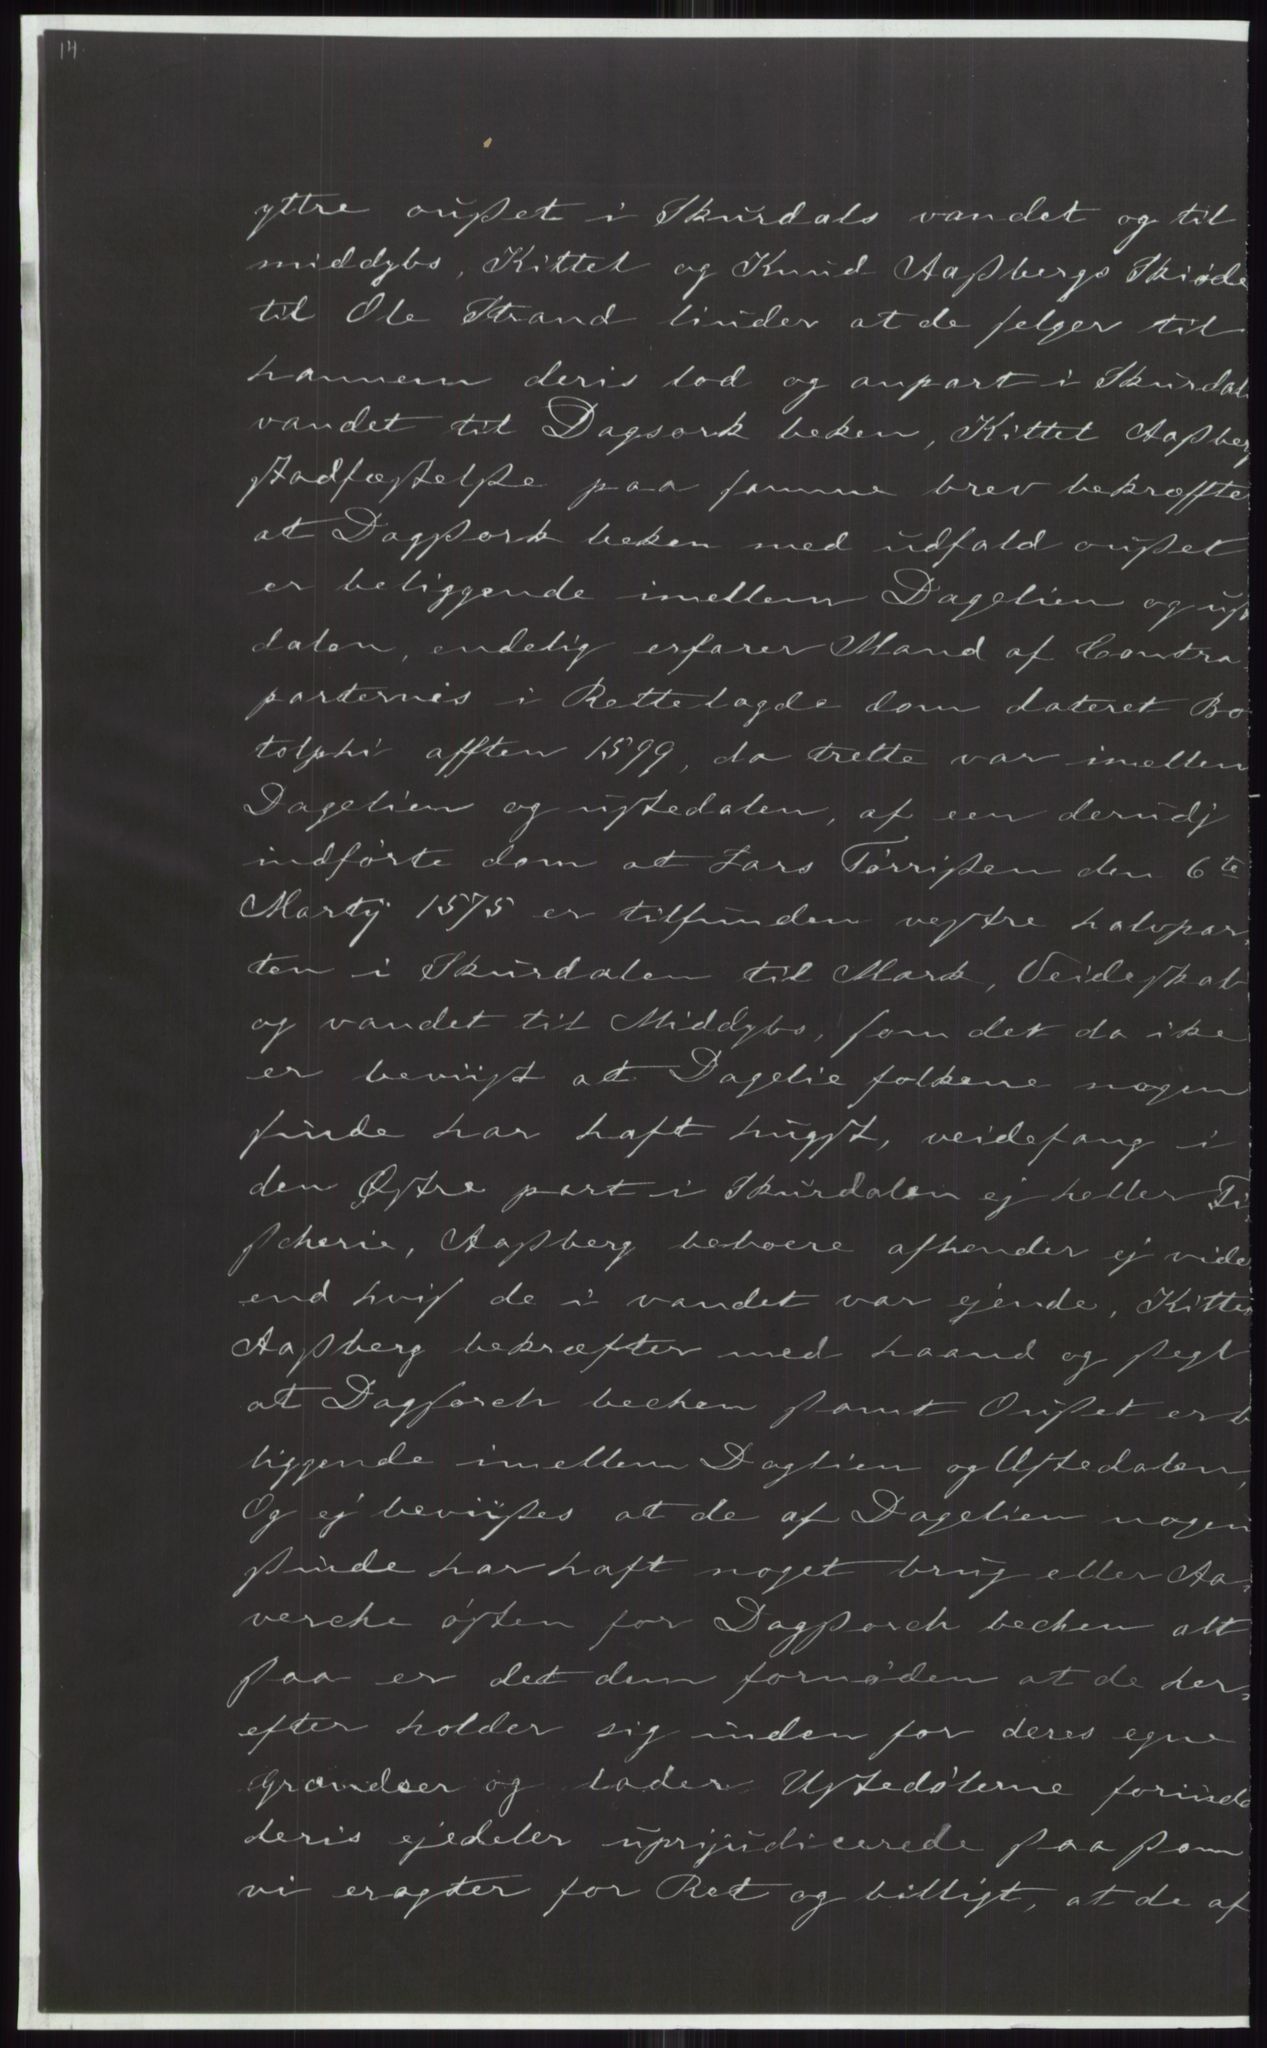 14.
yttre oußet i Skurdals vandet og til
middybs, Kittel og Knud Aaßbergs Skiöde
til Ole Strand liuder at de selger til
hannem deris lod og anpart i Skurdals
vandet til Dagsork beken, Kittel Aaßberg
stadfæstelße paa samme brev bekræffte
at Dagßork beken med udfald oußet
er beliggende imellem Dagelien og ust
dalen, endelig erfarer Mand af Contra
parternes i Rettelagde dom dateret Bo
tolphi afften 1599, da trette var imellem
Dagelien og ustedalen, af een derudj
indførte dom at Lars Tørrißen den 6te
Martij 1575 er tilfunden vestre halvpar
ten i Skurdalen til Mark, Veideskab
og vandet til Middybs, som det da ike
er beviist at Dagelie folkene nogen
sinde har haft hugst, veidefang i
den Østre part i Skurdalen ej heller Fi
scherie, Aaßberg beboere afhender ej vide
end hvis de i vandet var ejende, Kittel
Aaßberg bekræfter med haand og segl
at Dagsorch bechen samt Oußet er b
liggende imellem Daglien og Ustedalen,
Og ej beviißes at de af Dagelien nogen
sinde har haft noget brug eller Aa
verche østen for Dagßorch bechen alt
saa er det dem fornøden at de her
efter holder sig inden for deres egne
Grændser og lader Ustedølerne forinde
deris ejedeler uprijudicerede saa som
vi eragter for Ret og billigt, at de af